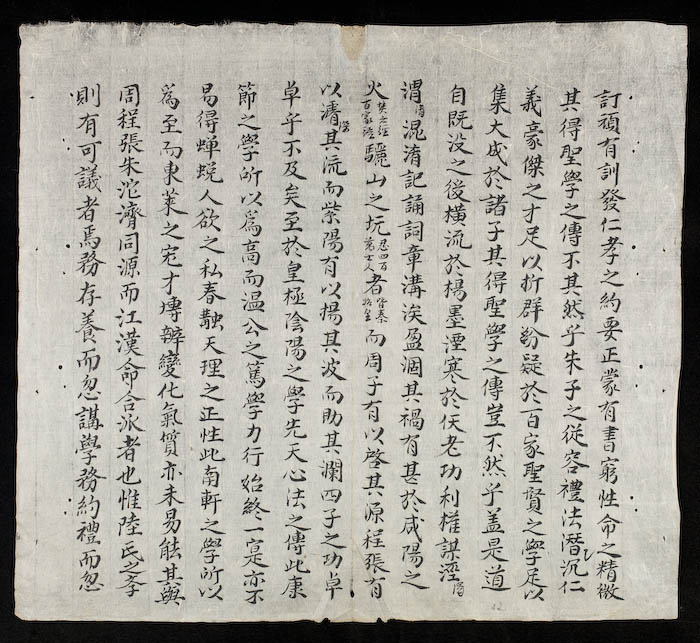 訂頑有訓發仁孝之約要正蒙有書窮性命之精微
其得聖學之傳不其然乎朱子之從容禮法潛沉仁
義豪傑之才足以折群紛疑於百家聖賢之學足以
集大成於諸子其得聖學之傳豈不然乎盖是道
自既没之後橫流於楊墨湮塞於佚老功利權謀涇濁
渭清混淆記誦詞章溝涘盈涸其禍有甚於咸陽之
火焚六經百家語驪山之坑四百人者皆秦始皇而周子有以啓其源程張有
以濬其流而紫陽有以揚其波而助其瀾四子之功卓
卓乎不及矣至於皇極陰陽之學先天心法之傳此康
節之學所以爲高而温公之篤學力行始終一寔亦不
易得蟬蛻人欲之私春融天理之正性此南軒之學所以
爲至而東萊之宏才博辯變化氣質亦未易能其與
周程張朱沱濟同源而江漢命合派者也惟陸氏之斈
則有可議者焉務存養而忽講學務約禮而忽